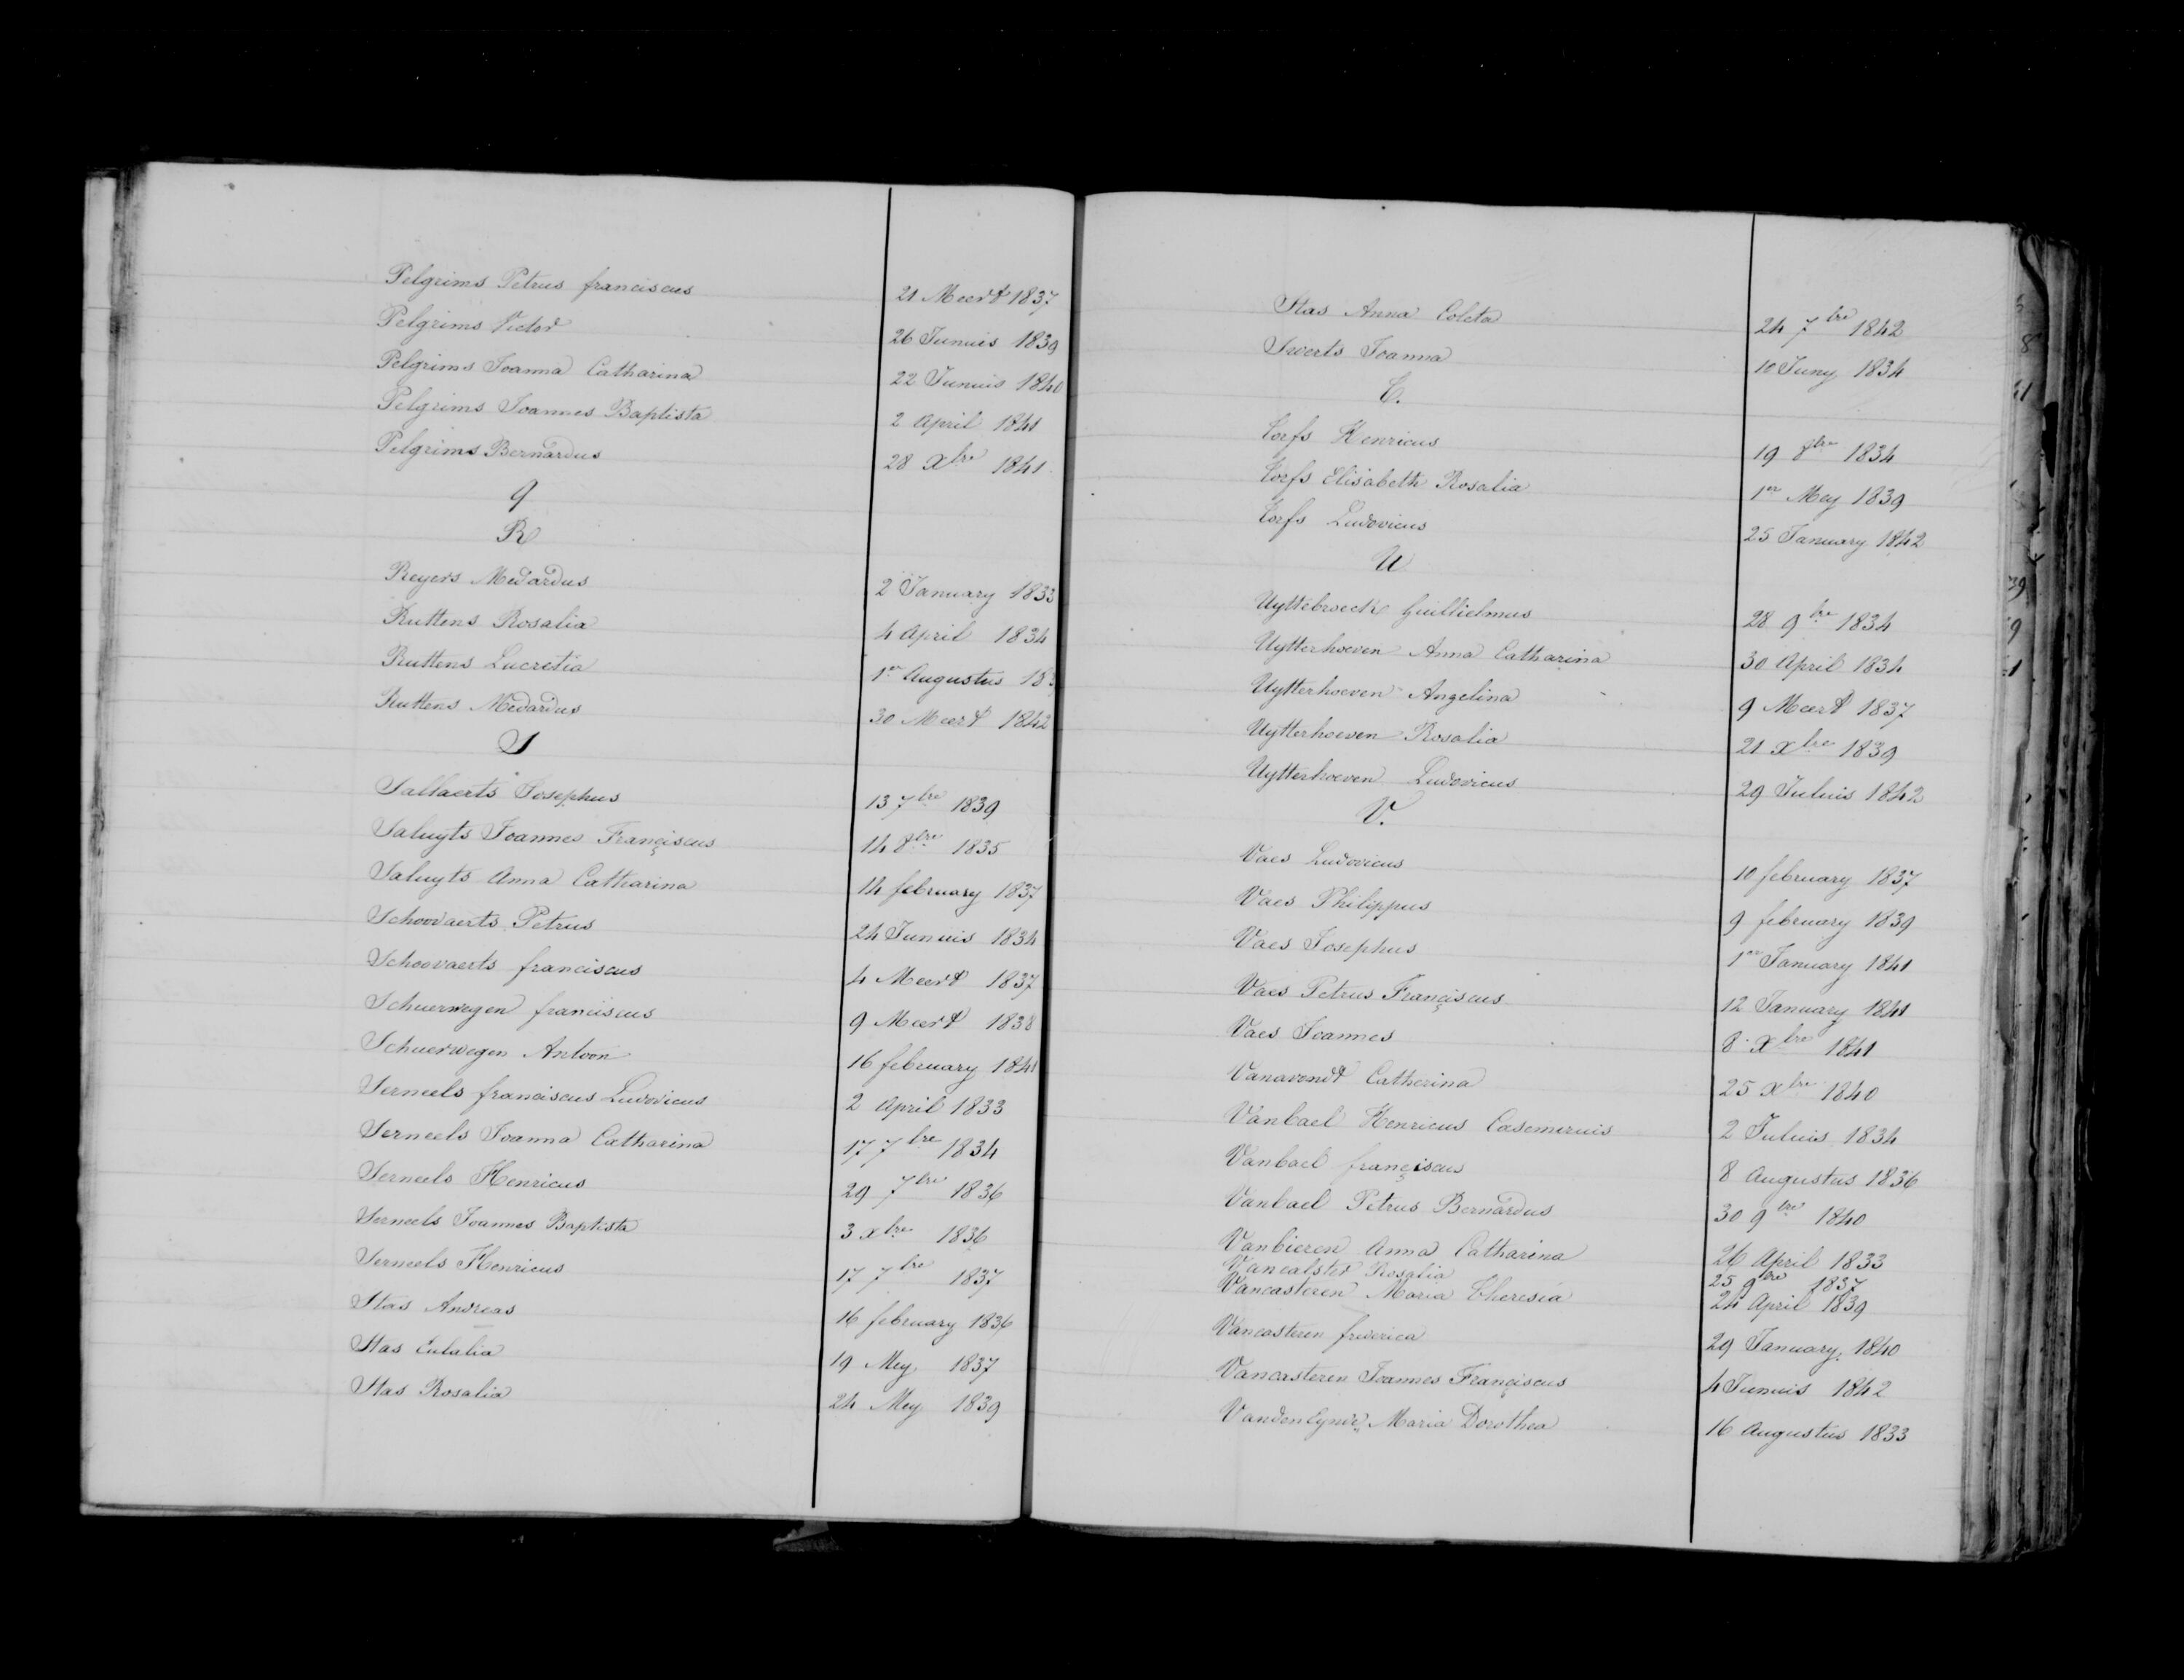 Pelgrims Petrus franciscus 21 Meert 1837
Pelgrims Victor 26 Junuis 1839
Pelgrims Joanna Catharina 22 Junuis 1840
Pelgrims Joannes Baptista 2 April 1841
Pelgrims Bernardus 28 Xbre 1841
Q
R
Reyers Medardus 2 January 1833
Ruttens Rosalia 4 April 1834
Ruttens Lucretia 1er Augustus 183
Ruttens Medardus 30 Meert 1842
S
Sallaerts Josephus 13 7bre 1839
Saluyts Joannes Franciscus 14 8bre 1835
Saluyts Anna Catharina 14 february 1837
Schoovaerts Petrus 24 Junuis 1834
Schoovaerts franciscus 4 Meert 1837
Schuerwegen franciscus 9 Meert 1838
Schuerwegen Antoon 16 february 1841
Serneels franciscus Ludovicus 2 April 1833
Serneels Joanna Catharina 17 7bre 1834
Serneels Henricus 29 7bre 1836
Serneels Joannes Baptista 3 xbre 1836
Serneels Henricus 17 7bre 1837
Stas Andreas 16 february 1836
Stas Eulalia 19 Mey 1837
Stas Rosalia 24 Mey 1839
Stas Anna Coleta 24 7bre 1842
Swerts Joanna 10 Juny 1834
T.
Torfs Henricus 19 8bre 1834
Torfs Elisabeth Rosalia 1er Mey 1839
Torfs Ludovicus 25 January 1842
U
Uyttebroeck Guillielmus 28 9bre 1834
Uytterhoeven Anna Catharina 30 April 1834
Uytterhoeven Angelina 9 Meert 1837
Uytterhoeven Rosalia 21 xbre 1839
Uytterhoeven Ludovicus 29 Juluis 1842
V.
Vaes Ludovicus 10 february 1837
Vaes Philippus 9 february 1839
Vaes Josephus 1er January 1841
Vaes Petrus Franciscus 12 January 1841
Vaes Joannes 8 Xbre 1841
Vanavondt Catherina 25 Xbre 1840
Vanbael Henricus Casemiruis 2 Juluis 1834
Vanbael franciscus 8 Augustus 1836
Vanbael Petrus Bernardus 30 9bre 1840
Vanbieren Anna Catharina 26 April 1833
Vancalster Rosalia 25 9bre 1837
Vancasteren Maria Theresia 24 April 1839
Vancasteren frederica 29 January 1840
Vancasteren Joannes Franciscus 4 Junuis 1842
Vandeneynde Maria Dorothea 16 Augustus 1833